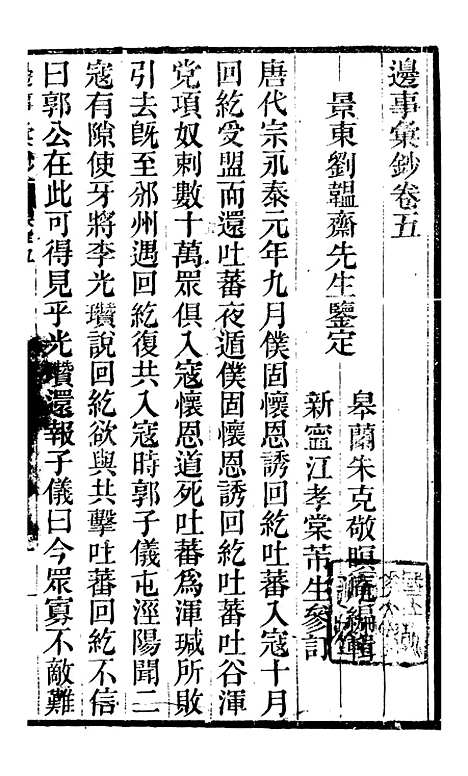 邊事彙鈔卷五
景東劉韞齋先生鑒定
皋蘭朱克敬暝菴編輯
新甯江孝棠芾生參訂
唐代宗永泰元年九月僕固懷恩誘回紇吐蕃入寇十月
回紇受盟而還吐蕃夜遁僕固懷恩誘回紇吐蕃吐谷渾
党項奴剌數十萬眾俱入寇懷恩道死吐蕃爲渾瑊所敗
引去旣至邠州遇回紇復共入寇時郭子儀屯涇陽聞二
寇有隙使牙將李光瓚說回紇欲與共擊吐蕃回紇不信
曰郭公在此可得見乎光瓚還報子儀曰今眾寡不敵難